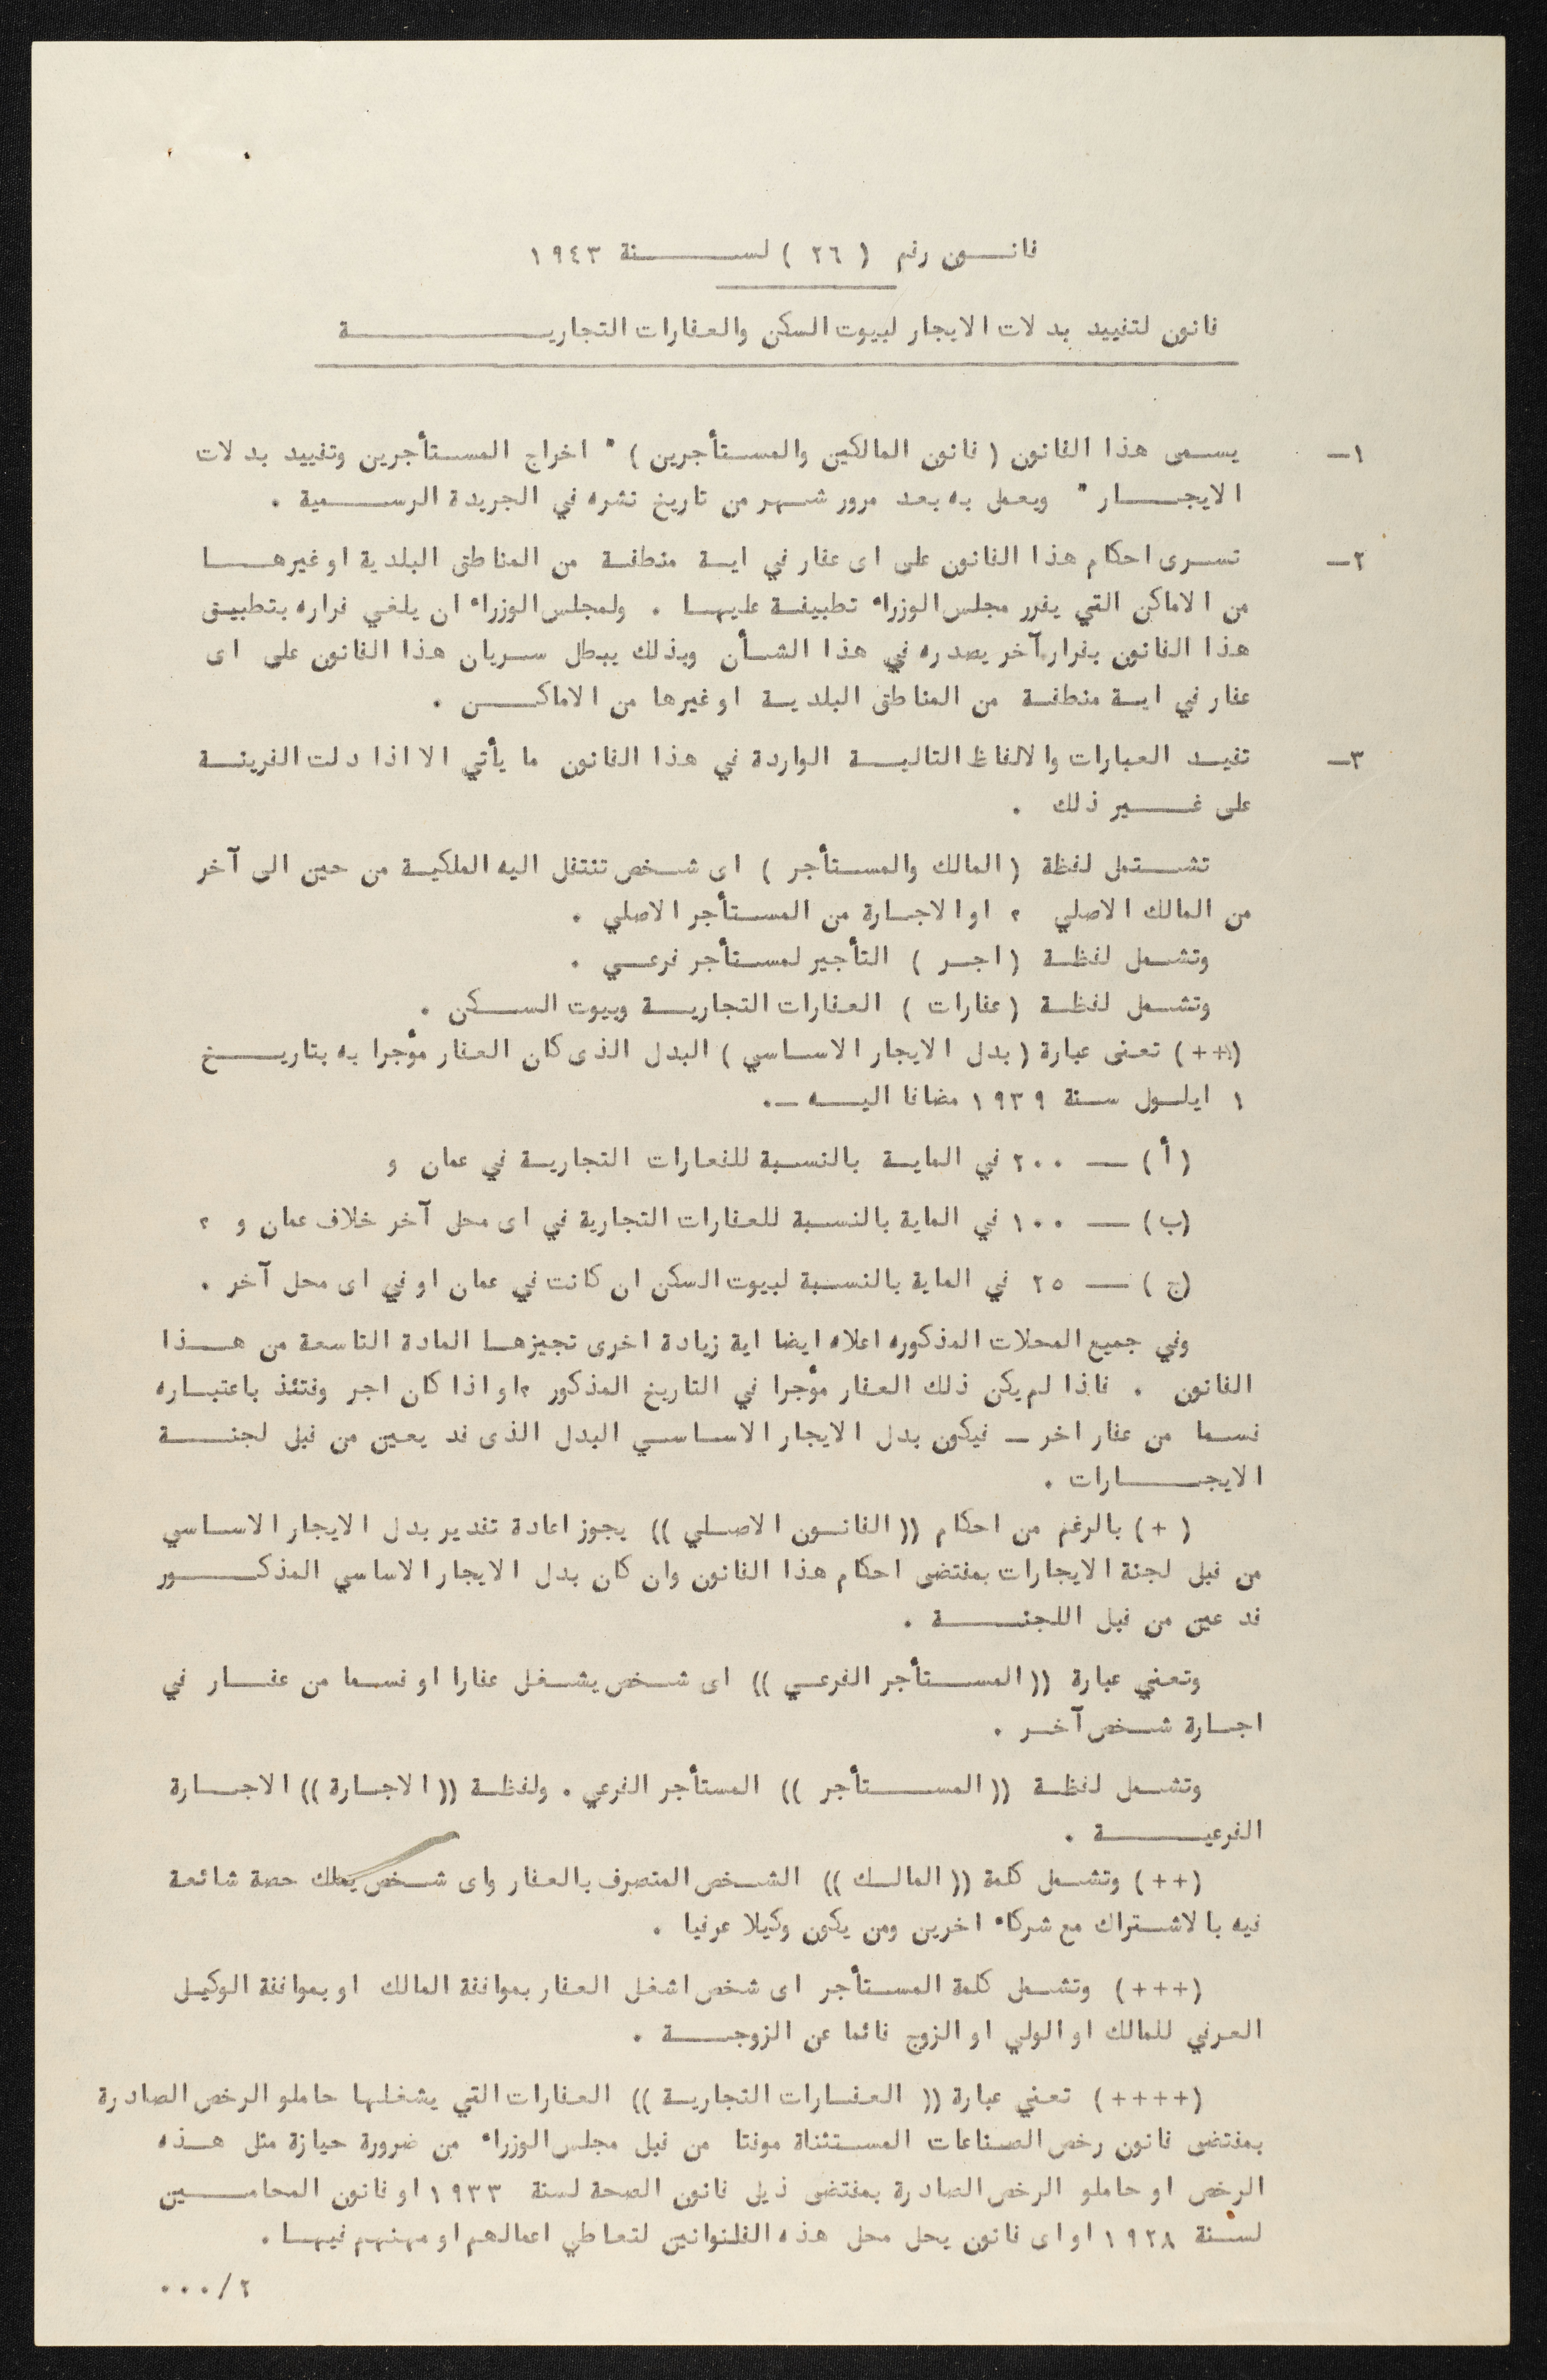 قانون رقم ( ٢٦ ) لسنة ١٩٤٣
قانون لتقييد بدلات الايجار لبيوت السكن والعقارات التجارية
١- يسمى هذا القانون ( قانون المالكين والمستأجرين ) " اخراج المستأجرين وتقييد بدلات
الايجار " ويعمل به بعد مرور شهر من تاريخ نشره في الجريدة الرسمية .
٢- تسرى احكام هذا القانون على اى عقار في اية منطقة من المناطق البلدية او غيرها
من الاماكن التي يقرر مجلس الوزراء تطبيقة عليها . ولمجلس الوزراء ان يلغي قراره بتطبيق
هذا القانون بقرار آخر يصدره في هذا الشأن وبذلك يبطل سريان هذا القانون على اى
عقار في اية منطقة من المناطق البلدية او غيرها من الاماكن .
٣- تفيد العبارات والالفاظ التالية الواردة في هذا القانون ما يأتي الا اذا دلت القرينة
على غير ذلك .
تشتمل لفظة ( المالك والمستأجر ) اى شخص تنتقل اليه الملكية من حين الى آخر
من المالك الاصلي ، او الاجارة من المستأجر الاصلي .
وتشمل لفظة ( اجر ) التأجير لمستأجر فرعي .
وتشمل لفظة ( عقارات ) العقارات التجارية وبيوت السكن .
(++) تعنى عبارة ( بدل الايجار الاساسي ) البدل الذى كان العقار مؤجرا به بتاريخ
١ ايلول سنة ١٩٣٩ مضافا اليه -.
( أ ) — ٢٠٠ في الماية بالنسبة للقعارات التجارية في عمان و
(ب) — ١٠٠ في الماية بالنسبة للعقارات التجارية في اى محل آخر خلاف عمان و ،
(ج ) — ٢٥ في الماية بالنسبة لبيوت السكن ان كانت في عمان او في اى محل آخر .
وفي جميع المحلات المذكوره اعلاه ايضا اية زيادة اخرى تجيزها المادة التاسعة من هذا
القانون . فاذا لم يكن ذلك العقار مؤجرا في التاريخ المذكور ، او اذا كان اجر وقتئذ باعتباره
قسما من عقار اخر – فيكون بدل الايجار الاساسي البدل الذى قد يعين من قبل لجنة
الايجارات .
( + ) بالرغم من احكام (( القانون الاصلي )) يجوز اعادة تقدير بدل الايجار الاساسي
من قبل لجنة الايجارات بمقتضى احكام هذا القانون وان كان بدل الايجار الاساسي المذكور
قد عين من قبل اللجنة .
وتعني عبارة (( المستأجر الفرعي )) اى شخص يشغل عقارا او قسما من عقار في
اجارة شخص آخر .
وتشمل لفظة (( المستأجر )) المستأجر الفرعي . ولفظة (( الاجارة )) الاجارة
الفرعية .
(++) وتشمل كلمة (( المالك )) الشخص المتصرف بالعقار واى شخص يملك حصة شائعة
فيه بالاشتراك مع شركاء اخرين ومن يكون وكيلا عرفيا .
(+++) وتشمل كلمة المستأجر اى شخص اشغل العقار بموافقة المالك او بموافقة الوكيل
العرفي للمالك او الولي او الزوج قائما عن الزوجة .
(++++) تعني عبارة (( العقارات التجارية )) العقارات التي يشغلها حاملو الرخص الصادرة
بمقتضى قانون رخص الصناعات المستثناة موقتا من قبل مجلس الوزراء من ضرورة حيازة مثل هذه
الرخص او حاملو الرخص الصادرة بمقتضى ذيل قانون الصحة لسنة ١٩٣٣ او قانون المحامين
لسنة ١٩٢٨ او اى قانون يحل محل هذه القلنوانين لتعاطي اعمالهم او مهنهم فيها .
٢/...